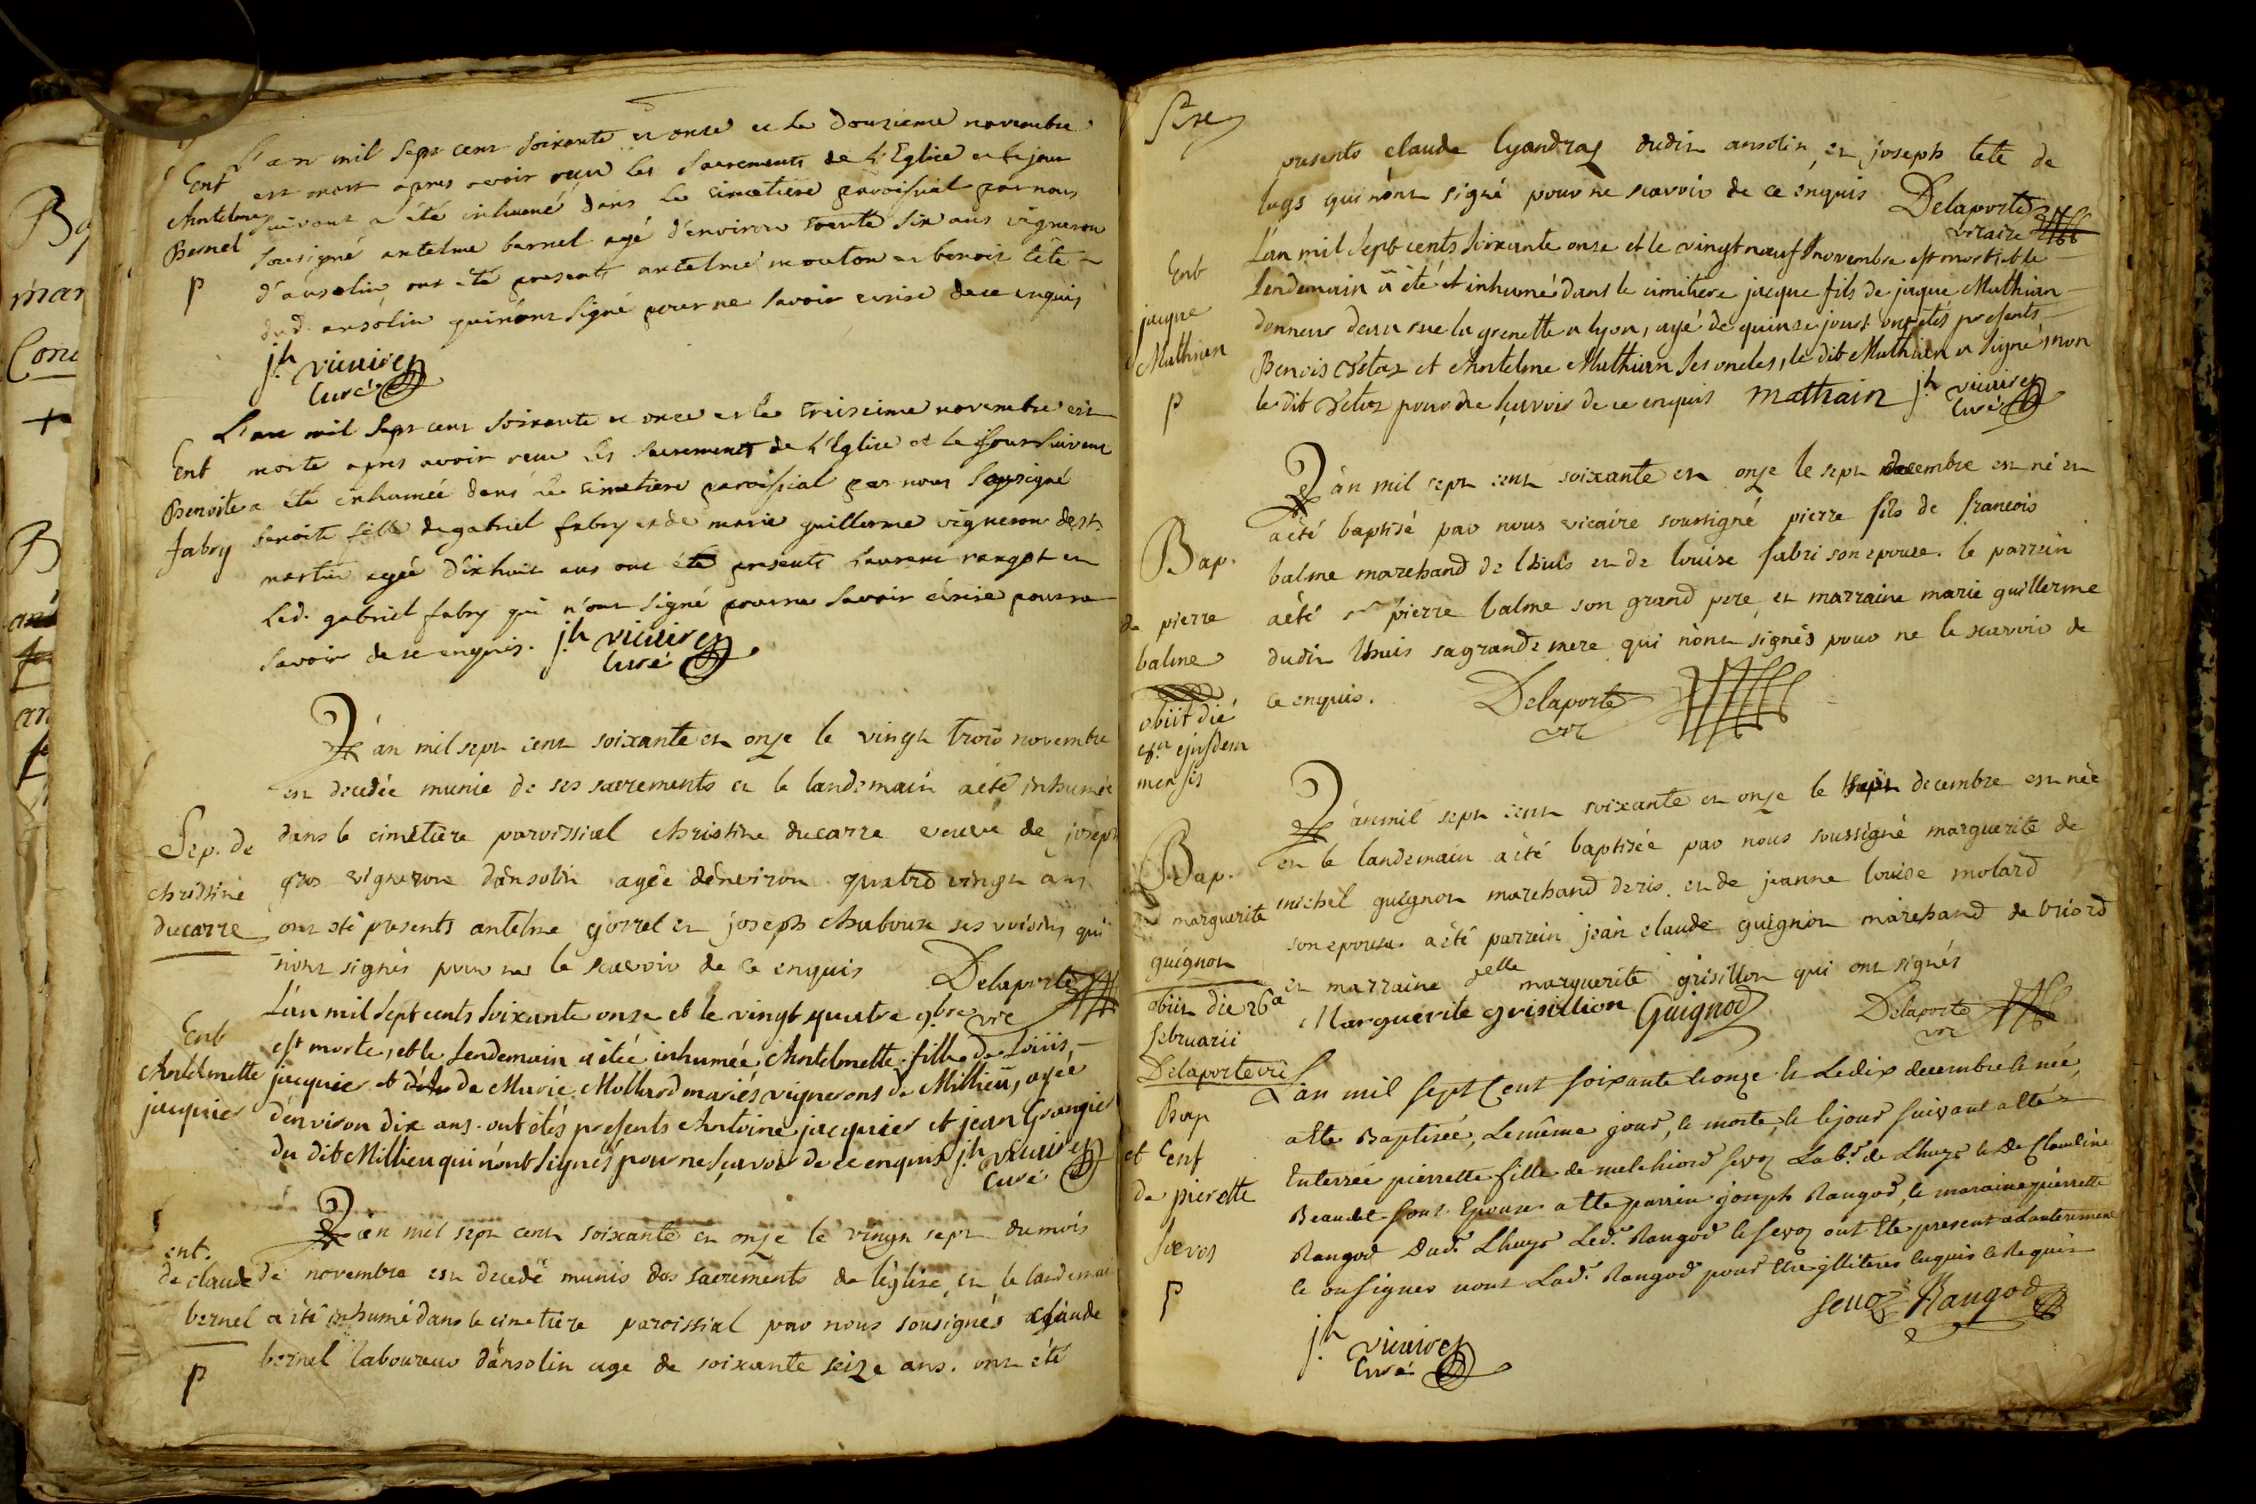 L'an mil sept cent soixante et onze et le douzieme novembre
Ent
est mort apres avoir reçu les sacrements de l'Eglise et le jour
Antelme
suivant a été inhumé dans le cimetiere paroissial par nous
Bernel
sousigné antelme bernel agé d'environ trente six ans vigneron
P
d'ansolin ont été presents antelme mouton et benoit tête
dud. ansolin qui n'ont signé pour ne savoir ecrire de ce enquis
jh vuiiven
Curé
L'an mil sept cent soixante et onze et le treisieme novembre est
Ent
morte apres avoir reçu les sacrements de l'Eglise et le jour suivant
Benoite
a été inhumée dans le cimetiere paroissial par nous sousigné
fabry
benoite fille de gabriel fabry et de marie guillerme vigneron de st
martin agée dixhuit ans ont été presents Laurent rangot et
led. gabriel fabry qui n'ont signé pour ne savoir écrire pour ne
savoir de ce enquis. jh vuiiven
Curé
L'an mil sept cent soixante et onze le vingt trois novembre
est decedée munie de ses sacrements et le landemain a été inhumée
Sep. de
dans le cimetière paroissial christine ducarre veuve de joseph
christine
gros vigneron d'ansolin agée d'environ quatre vingt ans
ducarre
ont été presents antelme gorrel et joseph chaboux ses voisins qui
n'ont signés pour ne le scavoir de ce enquis Delaporte
vre
L'an mil sept cents soixante onze et le vingt quatre 9bre
Ent
est morte, et le lendemain a étée inhumée Antelmette fille de Loüis
Antelmette
jacquier et de Marie Mollard mariés vignerons de Millieu, agée
jacquier
d'environ dix ans. ont étés presents Antoine jacquier et jean Grangier
du dit Millieu qui n'ont signés pour ne sçavoir de ce enquis jh vuiiven
Curé
L'an mil sept cent soixante et onze le vingt sept du mois
ent.
de claude
de novembre est decedé munis des sacrements de l'église et le landemain
bernel
a été inhumé dans le cimetière paroissial par nous sousignés claude
P
bernel laboureur d'ansolin age de soixante seize ans. ont été
presents claude lyandras dudit ansolin et joseph tete de
lugs qui n'ont signé pour ne scavoir de ce enquis Delaporte
vicaire
L'an mil sept cents soixante onze et le vingt neuf novembre est mort et le
Ent
lendemain a été inhumé dans le cimitiere jacque fils de jaque Mathian
jacque
donneur d'eau rue la grenette a lyon, agé de quinse jours ont étés presents
Mathian
Benois Vetaz et Antelme Mathian ses oncles, le dit Mathian a signé, non
P
le dit Vetaz pour ne sçavoir de ce enquis mathain jh vuiiven
Curé
L'an mil sept cent soixante et onze le sept decembre est né et
Bap.
a été baptisé par nous vicaire soussigné pierre fils de francois
balme marchand de lhuis et de louise fabri son epouse. le parrein
de pierre
a été sr pierre balme son grand pere et marraine marie guillerme
balme
dudit lhuis sa grande mere qui n'ont signés pour ne le scavoir de
ce enquis. Delaporte
vre
obiit die
8a ejusdem
mensis
L'an mil sept cent soixante et onze le sept decembre est née
et le landemain a été baptisée par nous soussigné marguerite de
Bap.
michel guignon marchand de ris. et de jeanne louise molard
marguerite
son epouse a été parrein jean claude guignon marchand de briord
guignon
et marraine delle marguerite grisillon qui ont signés
obiit die 26a
februarii
Marguerite grisillion Guignod Delaporte
vre
Delaporte vre
L'an mil sept Cent soixante et onze et Le dix decembre et née,
Bap
a Ete Baptisée, Le même jour, et morte, et le jour suivant a Eté
et Ent
Enterrée pierrette fille de melchiord sevoz Labr. de Lhuys et de Claudine
de pierette
Beaudet son Epouse a Ete parrin joseph Rangod, et maraine pierrette
Sevos
Rangod Dudt. Lhuys Led. Rangod et sevoz ont Ete present a Lenterement
P
et on signes nont Lad. Rangod pour Etre illiteres Enquis et Requis
sevoz Rangod
jh vuiiven
Curé